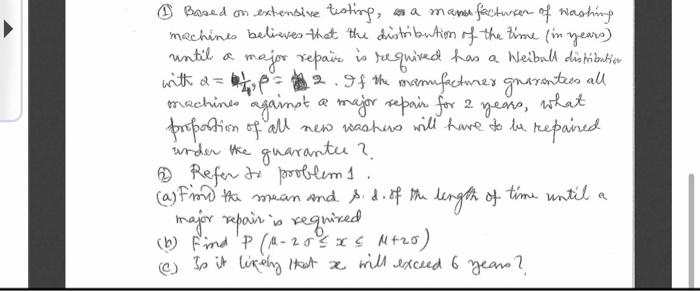 ① Based on extensive testing, a manufacturer of washing
machines believes that the distribution of the time (in years)
until a major repair is required has a Weibull distribution
with α = 1/4, β = 2. If the manufacturer guarantees all
machines against a major repair for 2 years, what
proportion of all new washers will have to be repaired
under the guarantee?
② Refer to problem 1.
(a) Find the mean and s.d. of the length of time until a
major repair is required
(b) Find P (μ-2σ ≤ x ≤ μ+2σ)
(c) Is it likely that x will exceed 6 years?